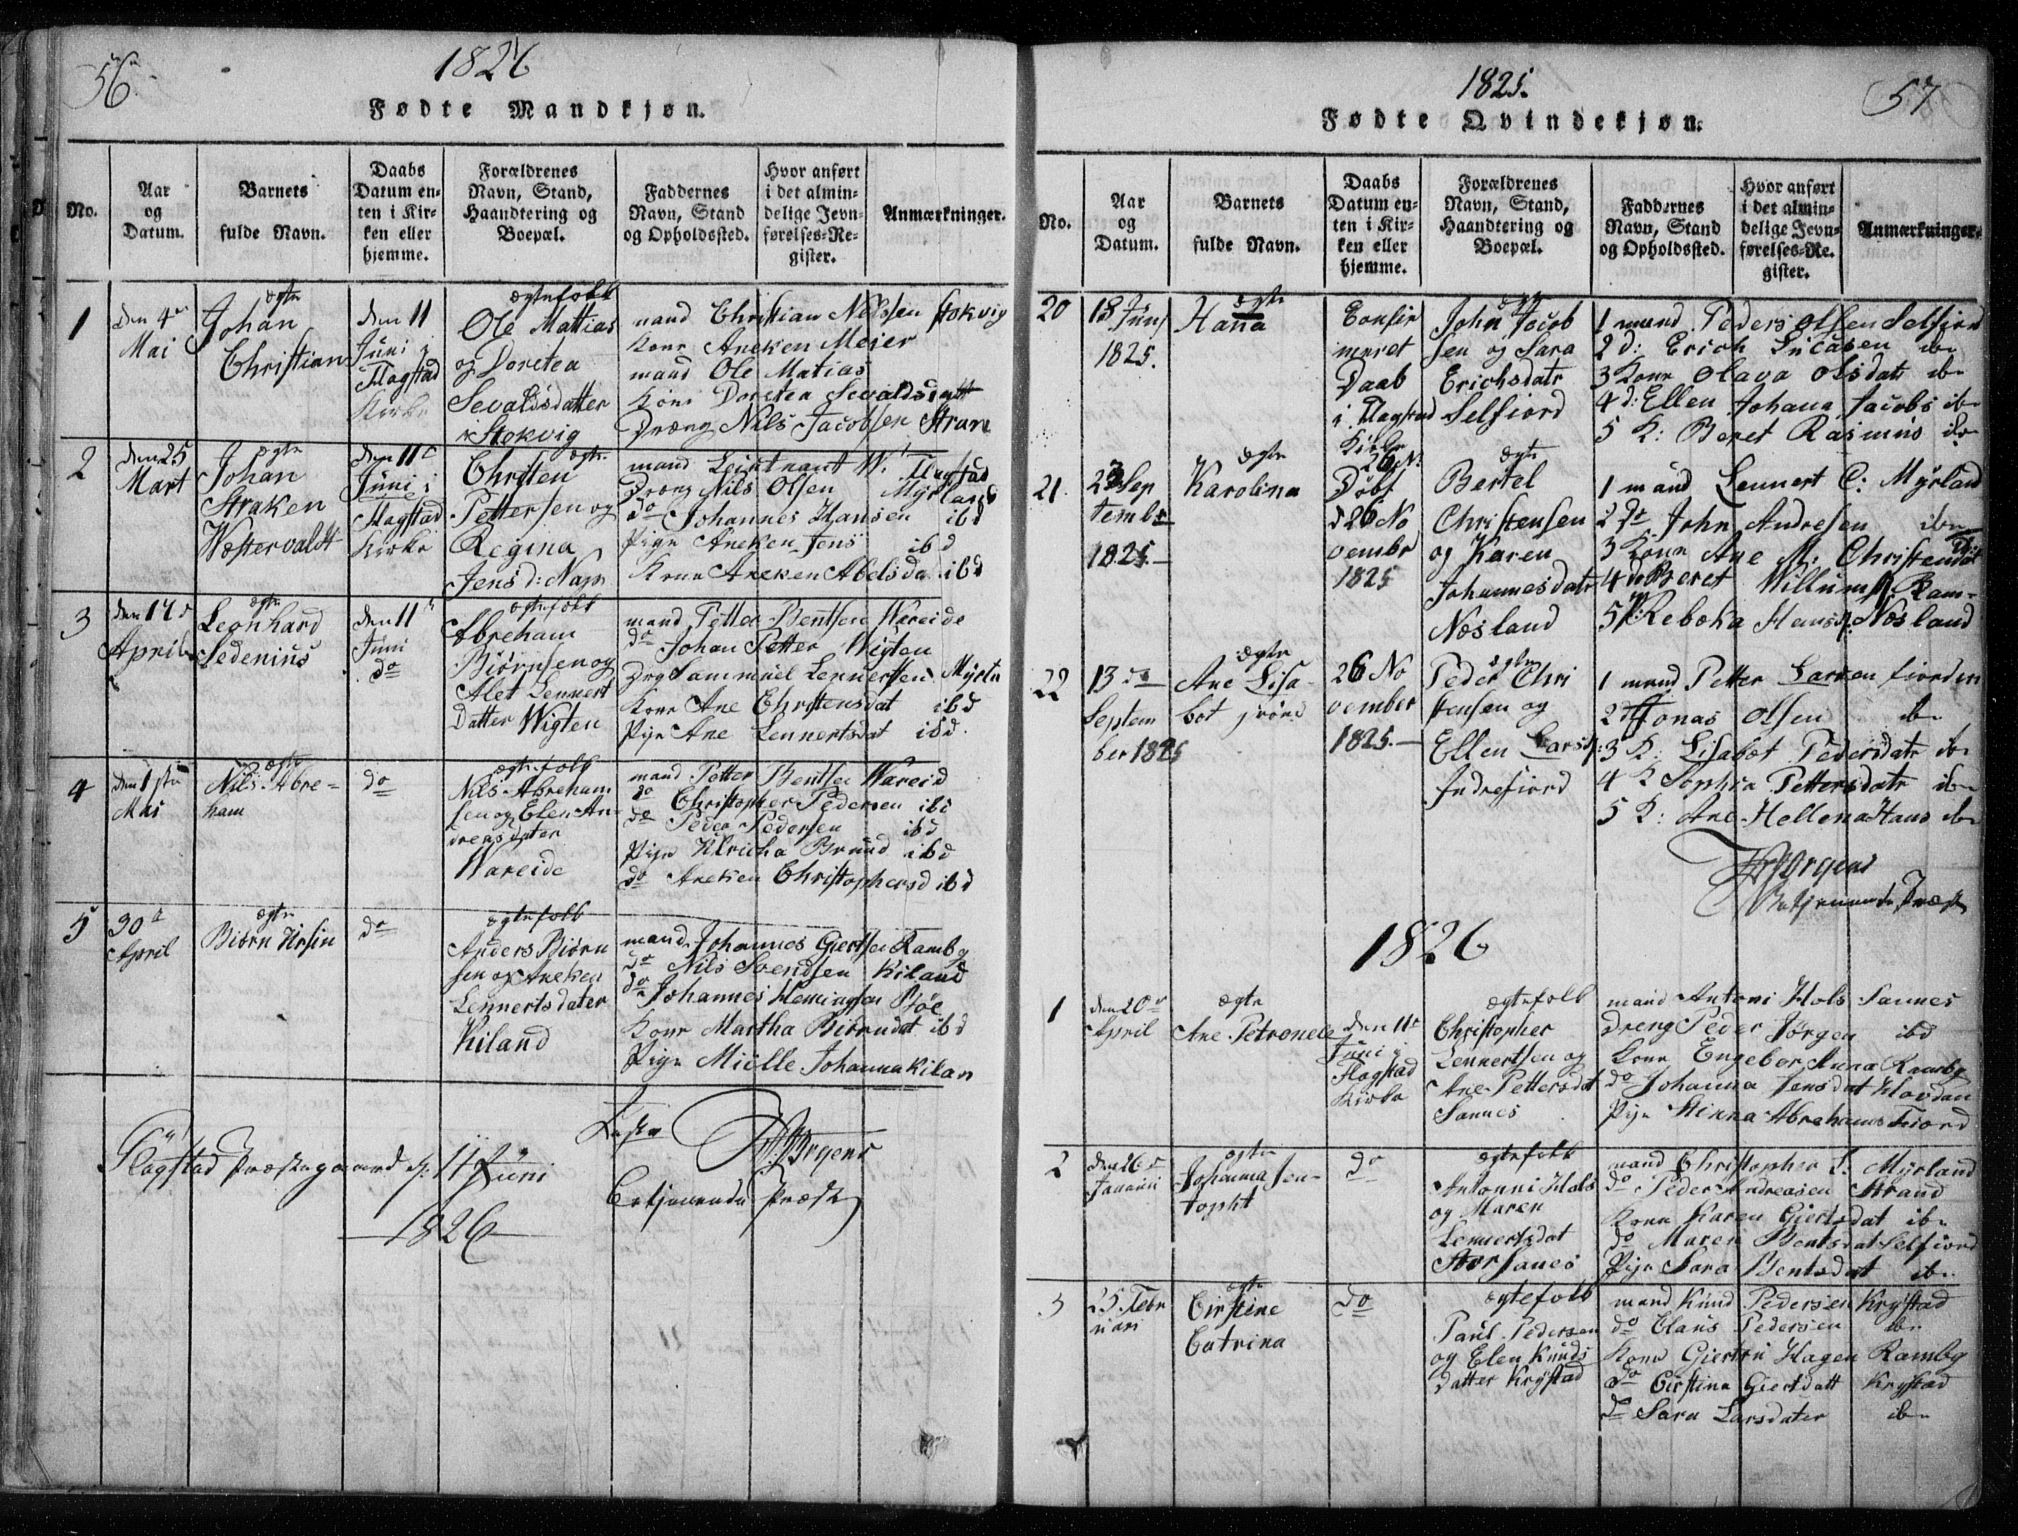 56
1826
Fødte Mandkjøn.
No.
Aar og Datum.
Barnets fulde Navn.
Daabs Datum enten i Kirken eller hjemme.
Forældrenes Navn, Stand, Haandtering og Boepæl.
Faddernes Navn, Stand og Opholdssted.
Hvor anført i det almindelige Jevnførelses-Register.
Anmærkninger.
1
den 4de
Mai
ægte
Johan
Christian
den 11
Juni i
Flagstad
Kirke
ægtefolk
Ole Mattias
og Doretea
Sevaldsdatter
Stokvig
mand Christian Nilssen Stokvig
Kone Aneken Meier
mand Ole Matias
Kone Doretea Sevaldsdatt
Dræng Nils Jacobsen Stran
2
den 25
Mart
ægte
Johan
Straken
Westervaldt
den 11te
Juni i
Flagstad
Kirke
ægte
Christen
Pettersen og
Regina
Jens d: Nap
mand Leintnant W. Flagstad
Dræng Nils Olsen Myrland
do Johannes Hansen ibd
Pige Aneken Jens ibd
Kone Aneken Abelsda ibd
3
den 17de
April
ægte
Leonhard
Sedenius
den 11te
Juni
do
ægtefolk
Abreham
Biørnsen og
Alet Lennert
Datter Wigten
mand Petter Bentsen Wareide
do Johan Petter Wigten
Drg Sammuel Lennertsen Myrln
Kone Ane Christensdat ibd
Pige Ane Lennertsdat ibd.
4
den 1ste
Mai
ægte
Nils Abre-
ham
do
ægtefolk
Nils Abreham
sen og Elen An-
dreasdater
Wareide
mand Petter Bentsen Wareid
do Christopher Pedersen ibd
do Peder Pedersen ibd
Pige Ulricha Brund ibd
do Aneken Christophersd ibd
5
30te
April
ægte
Biørn Ursin
do
ægtefolk
Anders Biørn
sen og Aneken
Lennertsdater
Kiland
mand Johannes Giertsen Rambg
do Nils Svendsen Kiland
do Johannes Hemingsen Bøe
Kone Martha Biørnsdat ibd
Pige Mielle Johanna Kilan
Flagstad Præstegaard d: 11 Juni
1826
Testr
Jørgens
Betjenende Præst
57
1825.
Fødte Qvindekjøn.
No.
Aar og Datum.
Barnets fulde Navn.
Daabs Datum enten i Kirken eller hjemme.
Forældrenes Navn, Stand, Haandtering og Boepæl.
Faddernes Navn, Stand og Opholdssted.
Hvor anført i det almindelige Jevnførelses-Register.
Anmærkninger.
20
18 Juni
1825.
ægte
Hana
Confir
meret
Daab
i Flagstad
Kirke
ægte
John Jacob
sen og Sara
Erichsdatr
Selfiord
1 mand Peder Olsen Selfiord
2 d: Erich Lucasen ibn
3 Kone Olava Olsdatr ibn
4 d: Ellen Johana Jacobs ibn
5 K: Beret Rasmus ibn
21
23 Sep
tembr
1825
ægte
Karolina
26 N:
Døbt
d 26 No
vembr
1825
ægte
Bertel
Christensen
og Karen
Johannesdatr
Næsland
1 mand Lennert C: Myrland
2 do John Andresen ibn
3 Kone Ane M: Christensd
4 do Beret Willums Ram-
5 P: Rebeka Hansd: Næsland
22
13 de
Septem
ber 1825
ægte
Ane Lisa
bet
26 No
vember
1825.
ægte
Peder Chri
stensen og
Ellen Larsd:
Indrefiord
1 mand Petter Larsen fiorden
2 d Jonas Olsen ibn
3 K: Lisabet Pedersdatr ibn
4 K Sophia Pettersdatr ibn
5 K: Ane Hellena Hans ibn
Jørgens
Betjenende Præst
1826
1
den 20de
April
ægte
Ane Petronele
den 11te
Juni i
Flagstad
Kirke
ægtefolk
Christopher
Lennertsen og
Ane Pettersdat
Sannes
mand Antoni Hols Sannes
Dreng Peder Jørgen ibd
Kone Engeber Anna Rambg
do Johanna Jensdat Hovdan
Pige Stinna Abrehams Fiord
2
den 26de
Januari
ægte
Johanna Jen-
topht
do
ægtefolk
Antonni Hols
og Maren
Lennertsdat
Stor Sanes
mand Christopher L: Myrland
do Peder Andreasen Strand
Kone Karen Giertsdat ibn
do Maren Bentsdat Selfiord
Pige Sara Bentsdat ibn
3
25 Febr
uari
ægte
Cirstine
Catrina
do
ægtefolk
Paul Pedersen
og Elen Knuds
datter Krystad
mand Knud Pedersen Krystad
do Claus Pedersen ibn
Kone Giertru Hagen Rambg
do Cirstina Giertsdatt Krystad
do Sara Larsdater ibn